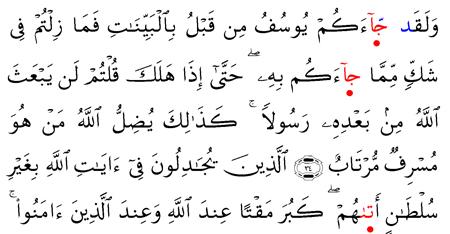 وَلَقَد جَّآءَكُمْ يُوسُفُ مِن قَبْلُ بِالْبَيِّنَٰتِ فَمَا زِلْتُمْ فِى
شَكٍّ مِّمَّا جَآءَكُم بِهِۦ ۖ حَتَّىٰٓ إِذَا هَلَكَ قُلْتُمْ لَن يَبْعَثَ
اللَّهُ مِنۢ بَعْدِهِۦ رَسُولاً ۚ كَذَٰلِكَ يُضِلُّ اللَّهُ مَنْ هُوَ
مُسْرِفٌ مُّرْتَابٌ ۝٣٤ الَّذِينَ يُجَٰدِلُونَ فِىٓ ءَايَٰتِ اللَّهِ بِغَيْرِ
سُلْطَٰنٍ أَتَىٰهُمْ ۖ كَبُرَ مَقْتًا عِندَ اللَّهِ وَعِندَ الَّذِينَ ءَامَنُوا۟ ۚ